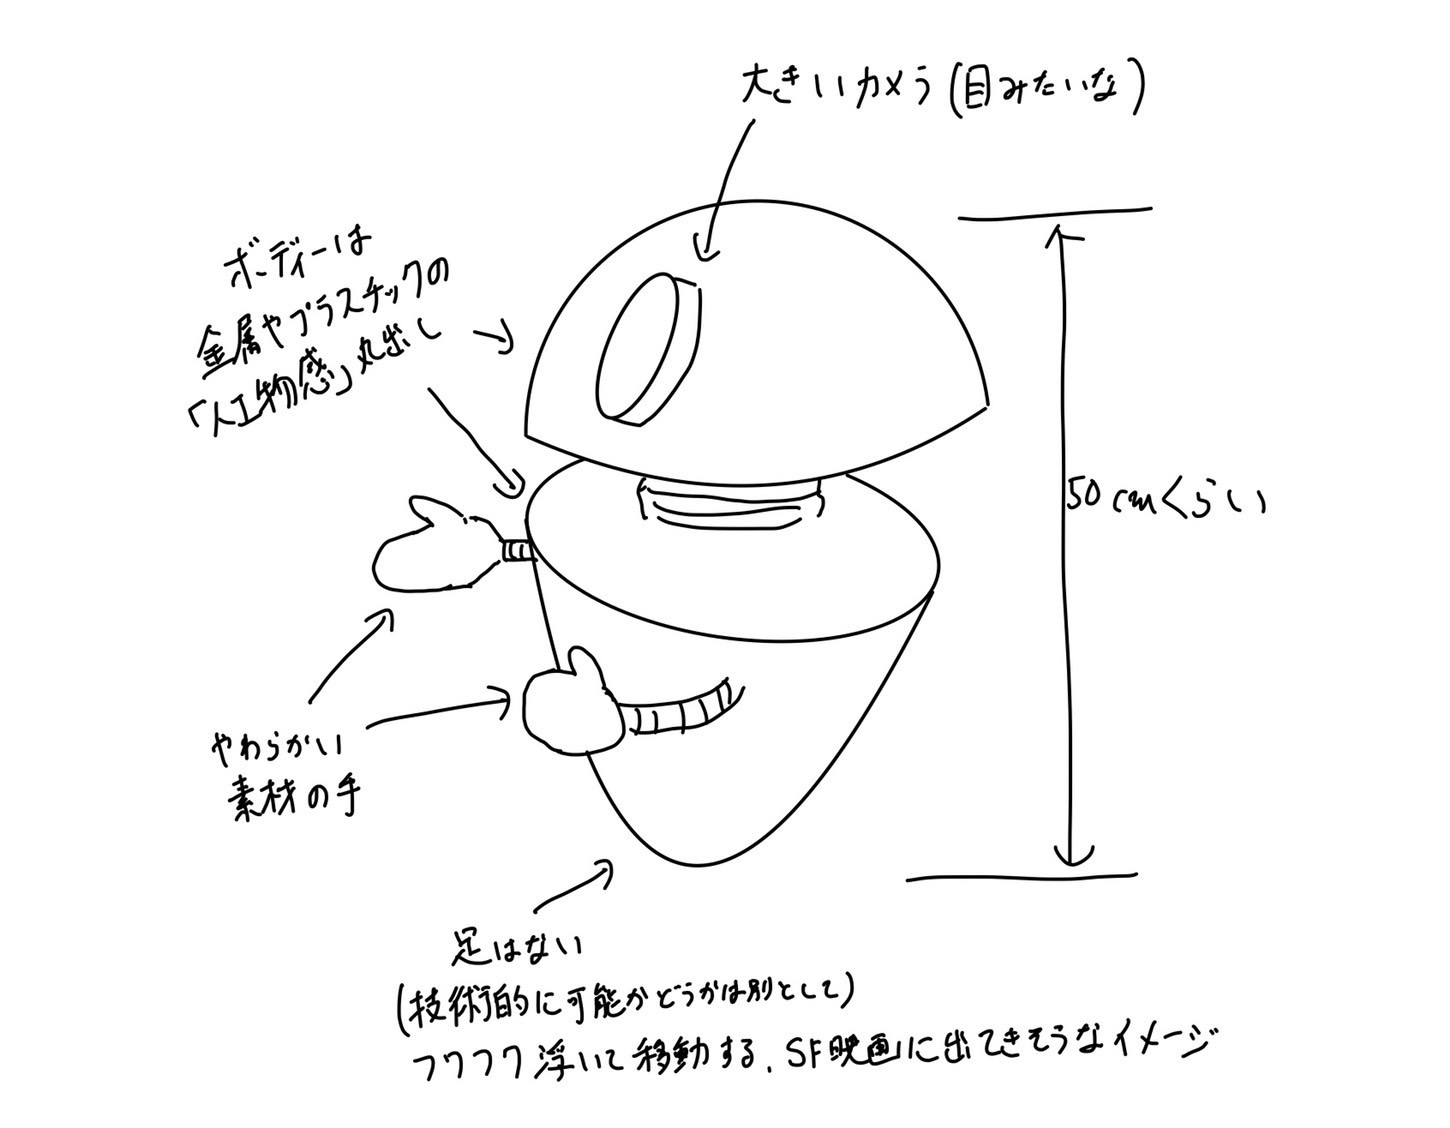 大きいカメラ(目みたいな)
ボディーは
金属やプラスチックの
「人工物感」丸出し
50cmくらい
やわらかい
素材の手
足はない
(技術的に可能かどうかは別として)
フワフワ浮いて移動する、SF映画に出てきそうなイメージ